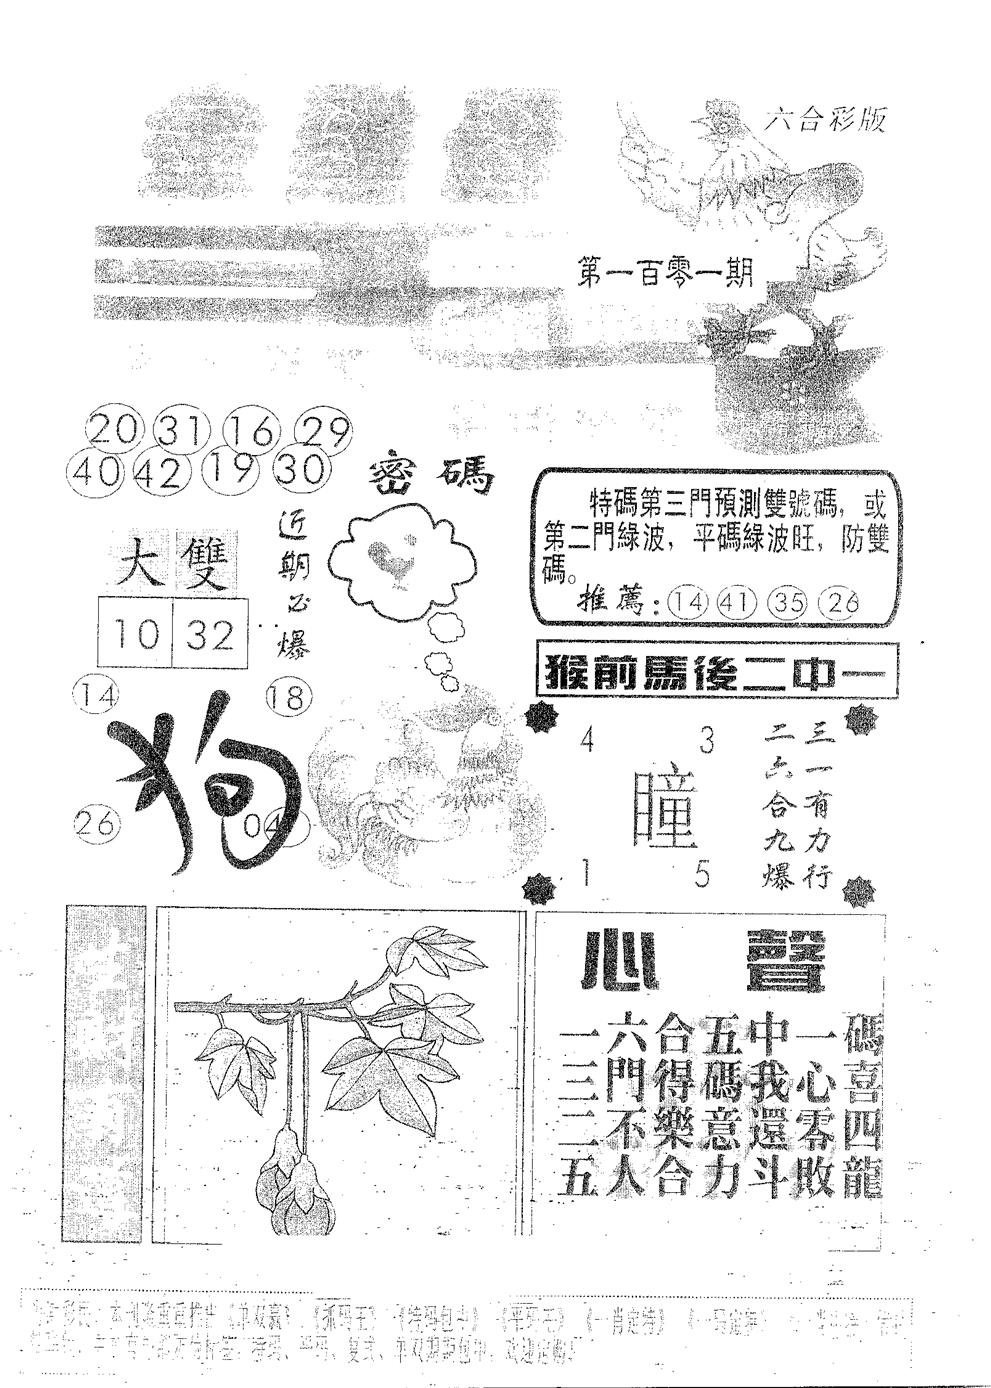 六合彩版
第一百零一期
20 31 16 29
40 42 19 30
密碼
近期必爆
大 雙
10 32
14 18
狗
26 04
特碼第三門預測雙號碼，或
第二門綠波，平碼綠波旺，防雙
碼。
推薦：14 41 35 26
猴前馬後二中一
4 3
瞳
1 5
三一有力行
二六合九爆
心聲
一六合五中一碼
三門得碼我心喜
二不樂意還零四
五人合力斗敗龍